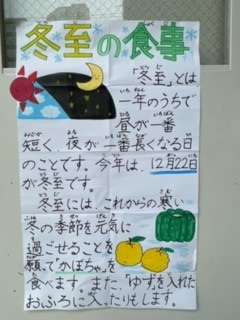 冬至の食事
「冬至」とは
一年のうちで
昼が一番
短く、夜が一番長くなる日
のことです。今年は、12月22日
が冬至です。
冬至には、これからの寒い
冬の季節を元気に
過ごせることを
願ってかぼちゃを
食べます。また、「ゆずを入れた
おふろに入ったりもします。